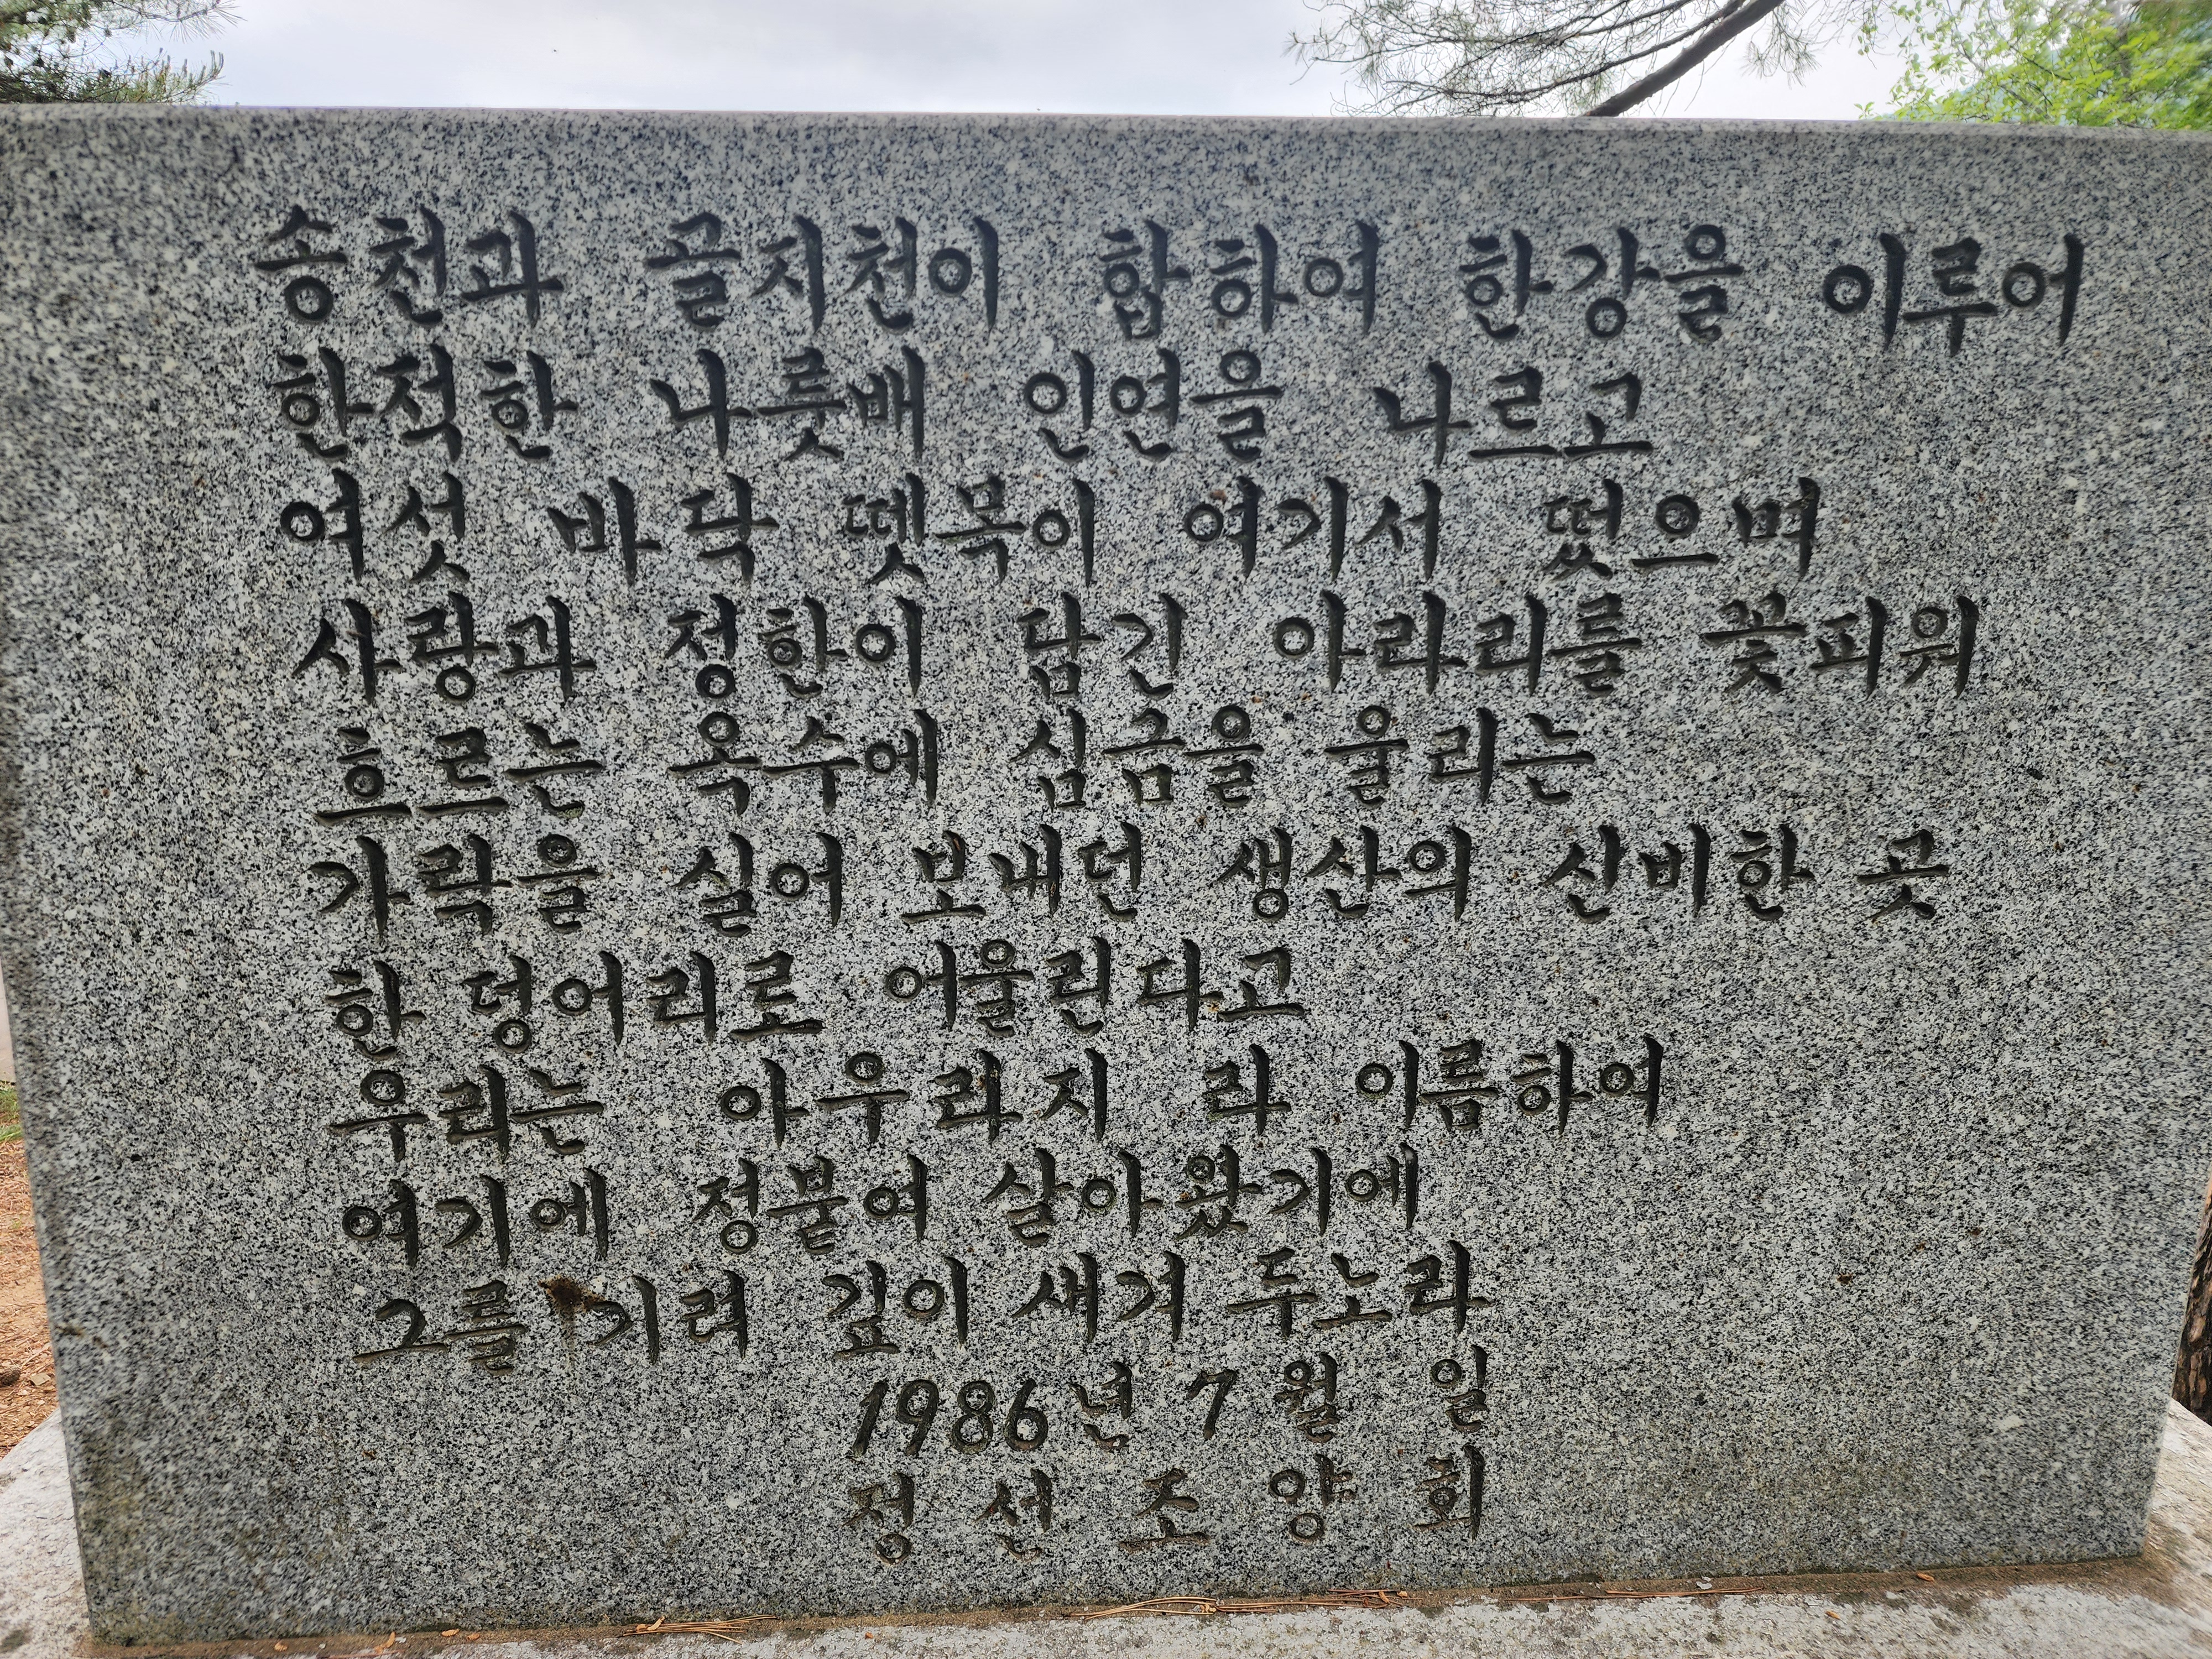 송천과 골지천이 합하여 한강을 이루어
한적한 나룻배 인연을 나르고
여섯 바닥 뗏목이 여기서 떴으며
사랑과 정한이 담긴 아라리를 꽃피워
흐르는 옥수에 심금을 울리는
가락을 실어 보내던 생산의 신비한 곳
한 덩어리로 어울린다고
우리는 아우라지 라 이름하여
여기에 정붙여 살아왔기에
그를 기려 깊이 새겨 두노라
1986년 7월 일
정 선 조 양 회